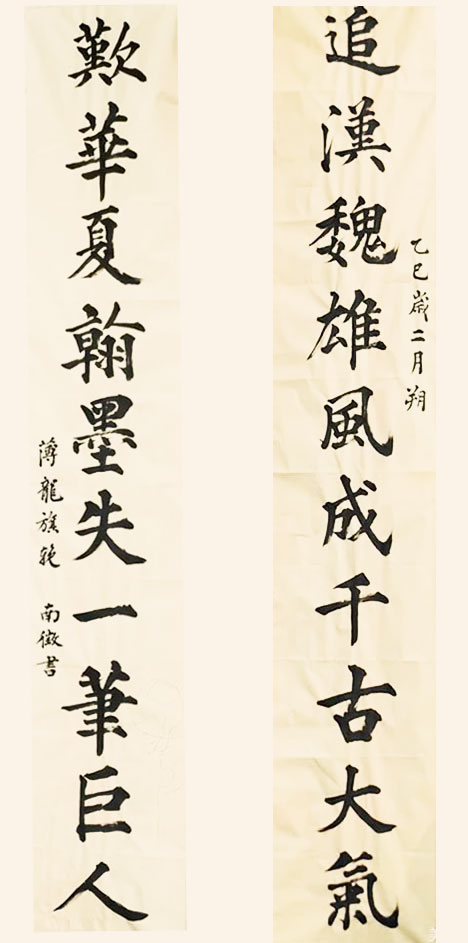 追漢魏雄風成千古大氣
乙巳歲二月朔
歎華夏翰墨失一筆巨人
薄龍旗輓 南徵書